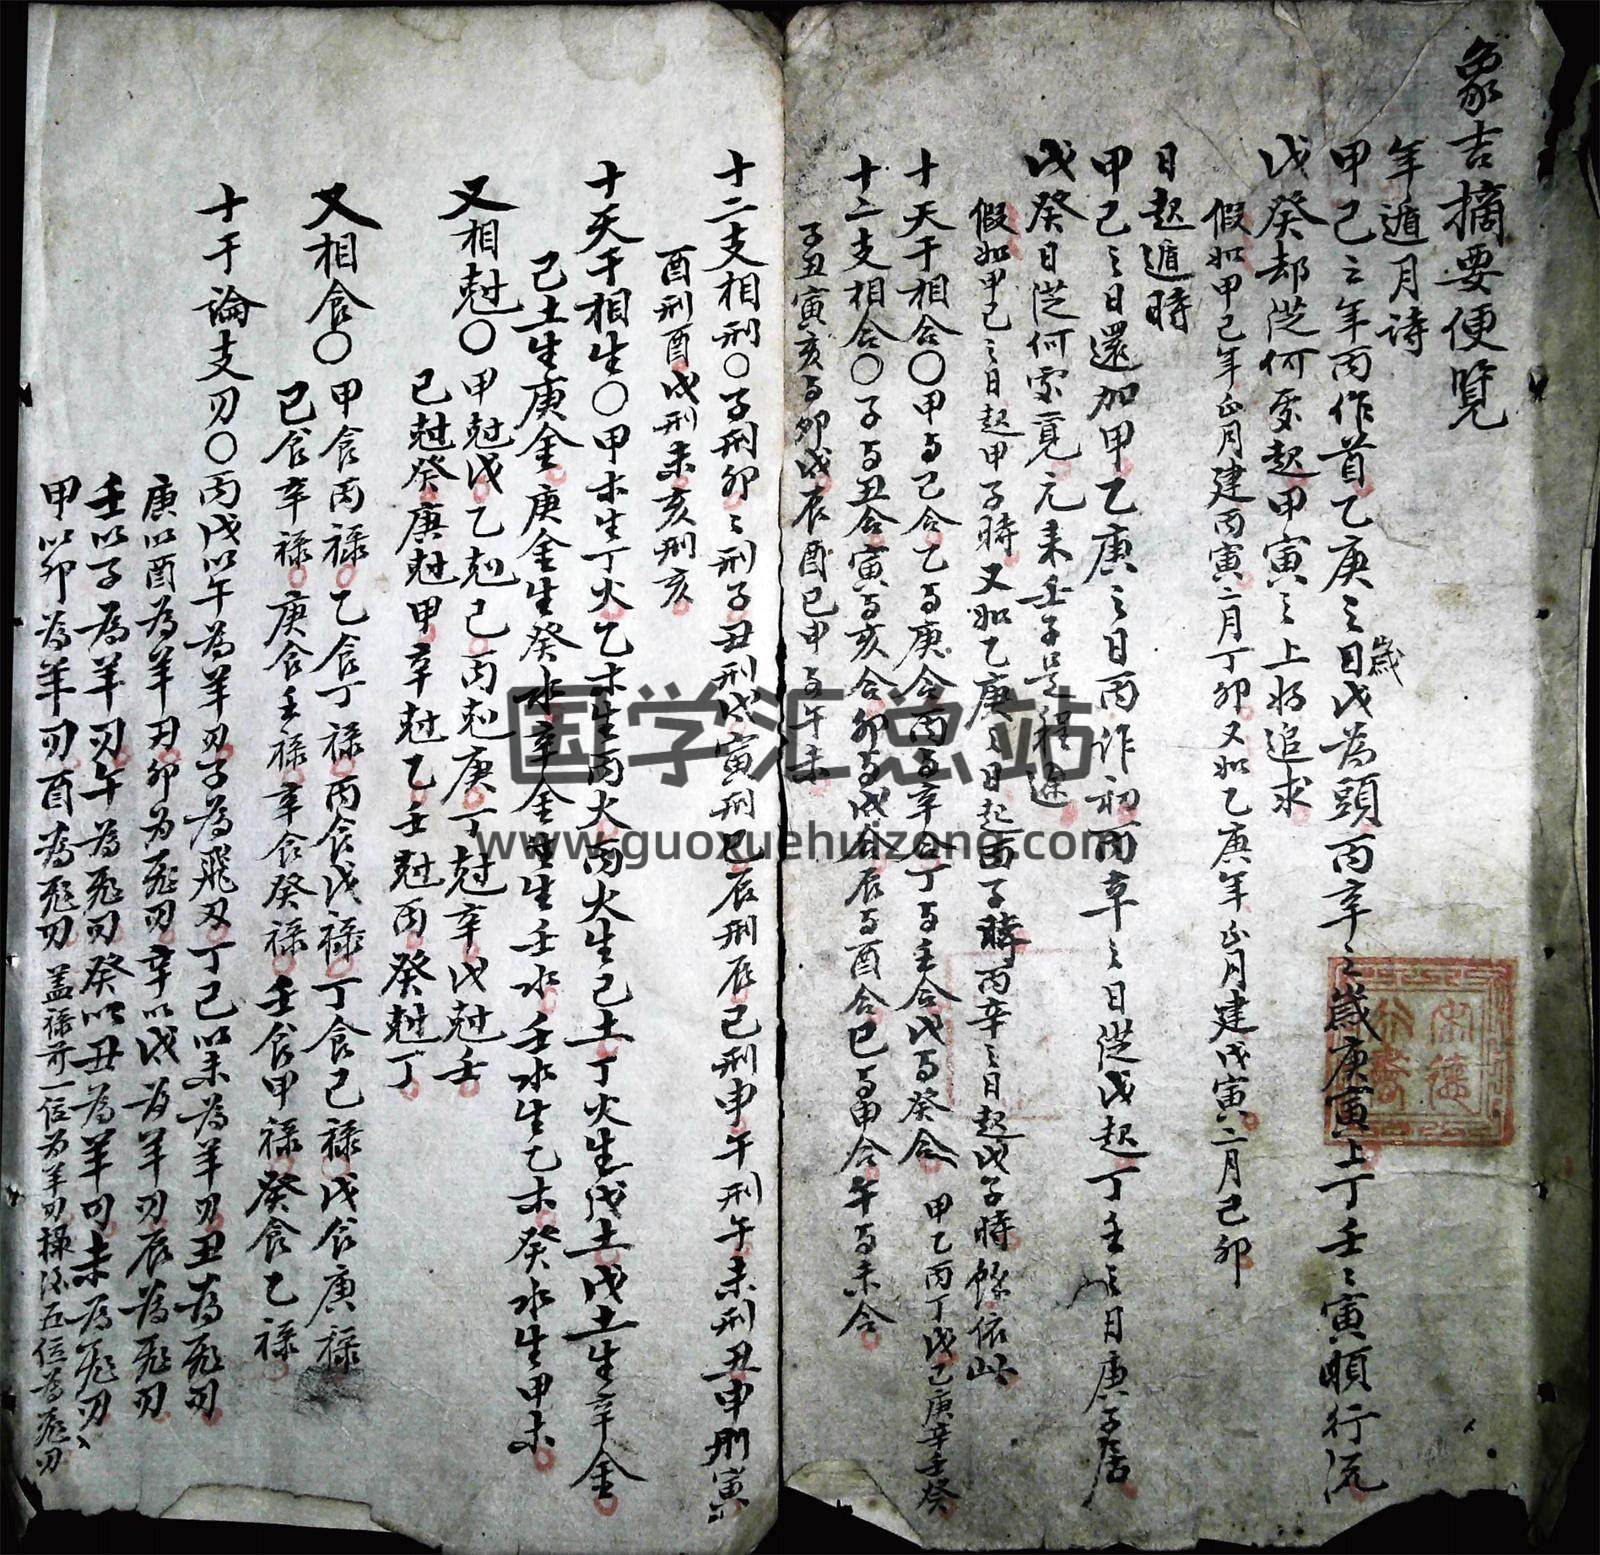 象吉摘要便覽
年遁月詩
甲己之年丙作首乙庚之日歲戊為頭丙辛之歲庚寅上丁壬壬寅順行流
戊癸却從何處起甲寅之上好追求
假如甲己年正月建丙寅二月丁卯又如乙庚年正月建戊寅二月己卯
日起遁時
甲己之日還加甲乙庚之日丙作初丙辛之日從戊起丁壬之日庚子居
戊癸日從何寔覓元來壬子是程途
假如甲己之日起甲子時又如乙庚之日起丙子時丙辛之日起戊子時餘依此
十天干相合〇甲与己合乙与庚合丙与辛合丁与壬合戊与癸合 甲乙丙丁戊己庚辛壬癸
十二支相合〇子与丑合寅与亥合卯与戌合辰与酉合巳与申合午与未合
子丑寅亥与卯戌辰酉巳申与午未
十二支相刑〇子刑卯卯刑子丑刑戌寅刑巳辰刑辰巳刑申午刑午未刑丑申刑寅
酉刑酉戌刑未亥刑亥
十天干相生〇甲木生丁火乙木生丙火丙火生己土丁火生戊土戊土生辛金
己土生庚金庚金生癸水辛金生壬水壬水生乙木癸水生甲木
又相尅〇甲尅戊乙尅己丙尅庚丁尅辛戊尅壬
己尅癸庚尅甲辛尅乙壬尅丙癸尅丁
又相食〇甲食丙祿乙食丁祿丙食戊祿丁食己祿戊食庚祿
己食辛祿庚食壬祿辛食癸祿壬食甲祿癸食乙祿
十干論支刃〇丙戊以午為羊刃子為飛刃丁己以未為羊刃丑為飛刃
庚以酉為羊刃卯為飛刃辛以戌為羊刃辰為飛刃
壬以子為羊刃午為飛刃癸以丑為羊刃未為飛刃
甲以卯為羊刃酉為飛刃蓋祿前一位為羊刃祿後五位為飛刃
国学汇总站
www.guoxuehuizong.com